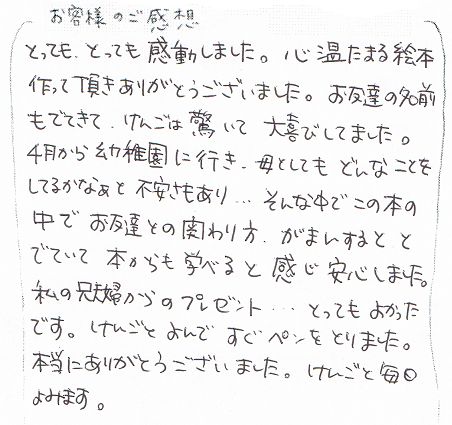 お客様のご感想
とっても、とっても感動しました。心温たまる絵本
作って頂きありがとうございました。お友達の名前
もでてきて、けんごは驚いて大喜びしてました。
4月から幼稚園に行き、母としてもどんなことを
してるかなぁと不安さもあり…そんな中でこの本の
中でお友達との関わり方、がまんすることと
でていて本からも学べると感じ安心しました。
私の兄夫婦からのプレゼント…とってもよかった
です。けんごとよんですぐペンをとりました。
本当にありがとうございました。けんごと毎日
よみます。